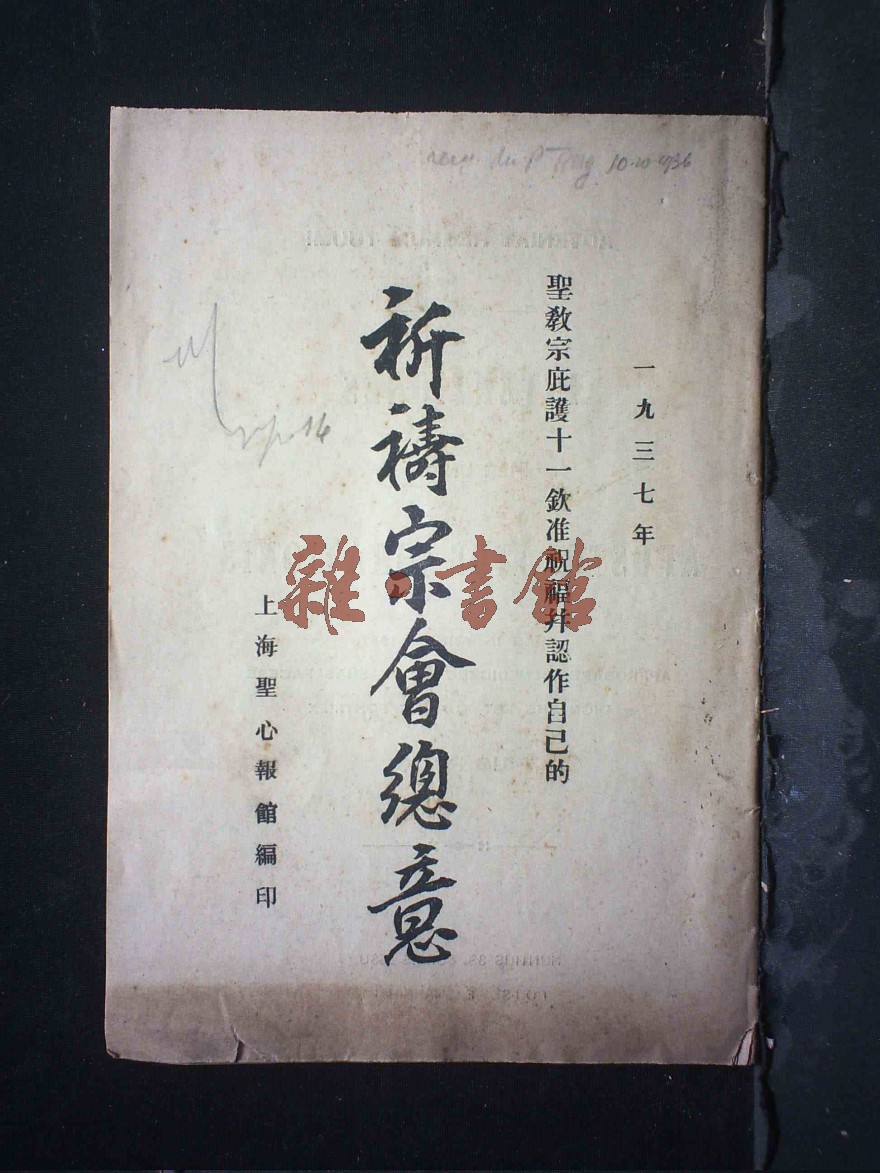 一九三七年
聖教宗庇護十一欽准祝福并認作自己的
祈禱宗會總意
上海聖心報館編印
雜·書館
10-10-1936